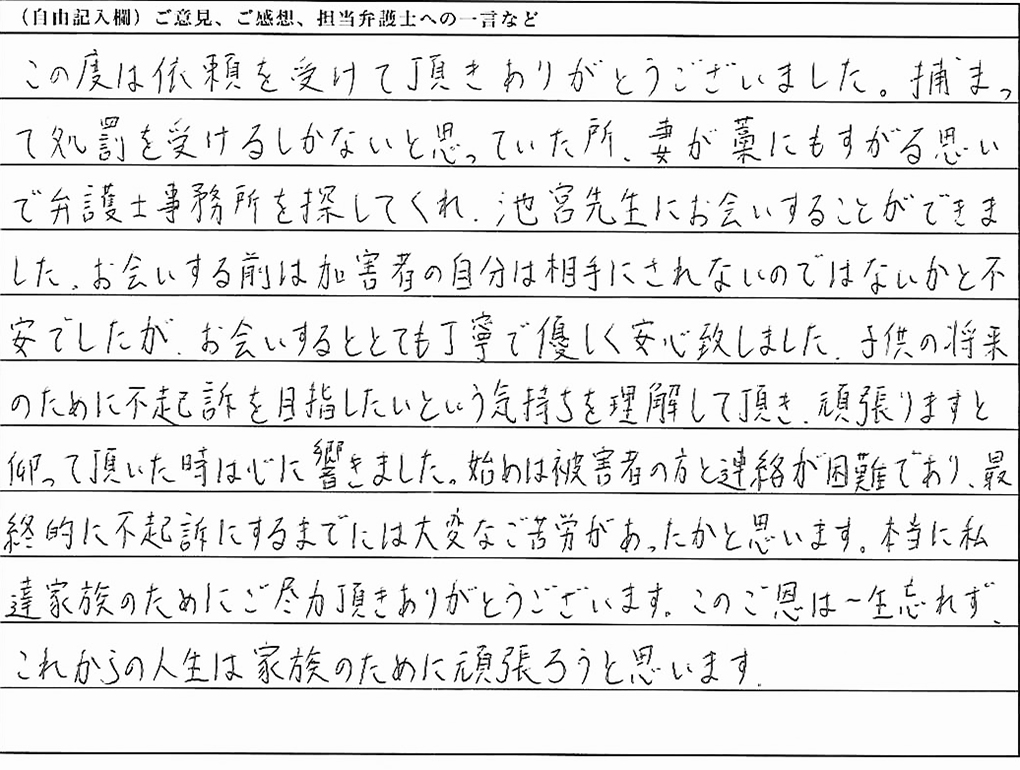 （自由記入欄）ご意見、ご感想、担当弁護士への一言など
この度は依頼を受けて頂きありがとうございました。捕まっ
て処罰を受けるしかないと思っていた所、妻が藁にもすがる思い
で弁護士事務所を探してくれ、池宮先生にお会いすることができま
した。お会いする前は加害者の自分は相手にされないのではないかと不
安でしたが、お会いするととても丁寧で優しく安心致しました。子供の将来
のために不起訴を目指したいという気持ちを理解して頂き、頑張りますと
仰って頂いた時は心に響きました。始めは被害者の方と連絡が困難であり、最
終的に不起訴にするまでには大変なご苦労があったかと思います。本当に私
達家族のためにご尽力頂きありがとうございます。このご恩は一生忘れず、
これからの人生は家族のために頑張ろうと思います。